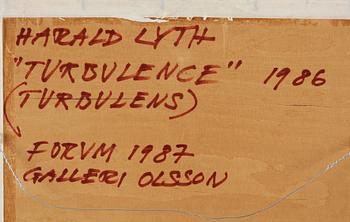 HARALD LYTH
"TURBULENCE" 1986
(TURBULENS)
FORVM 1987
GALLERI OLSSON